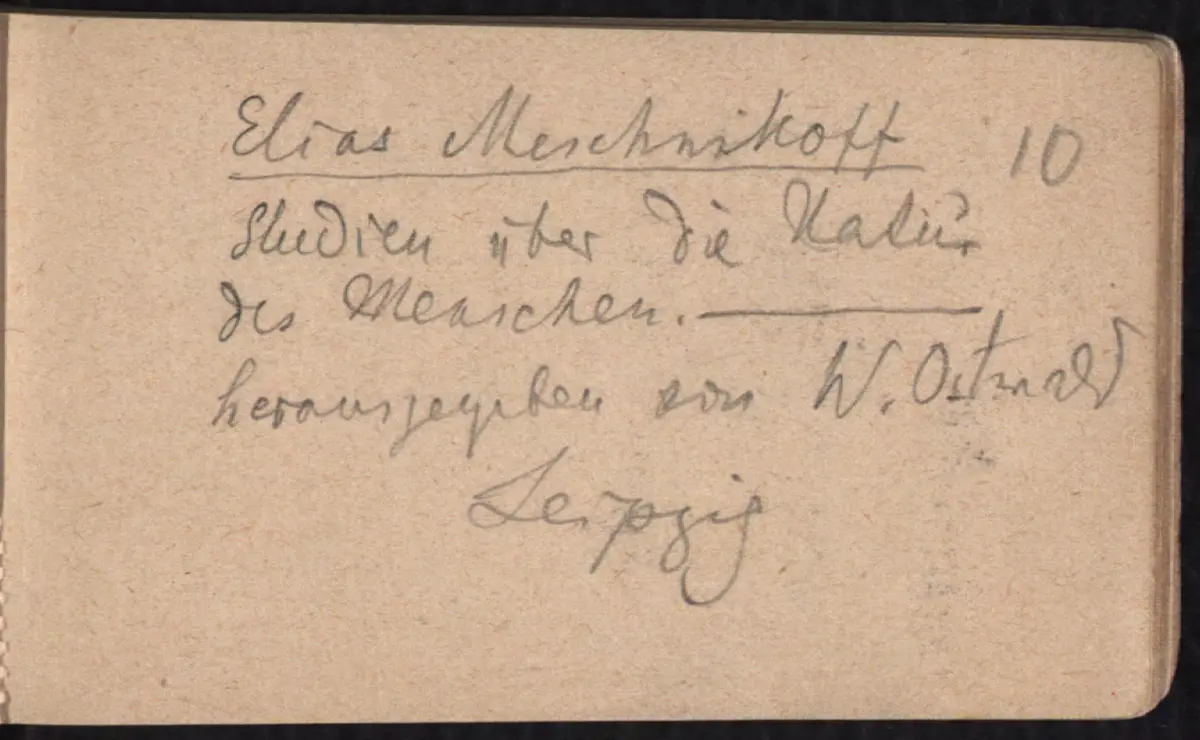 Elias Meschnikoff 10
Studien über die Natur
des Menschen.
herausgegeben von W. Ostwald
Leipzig